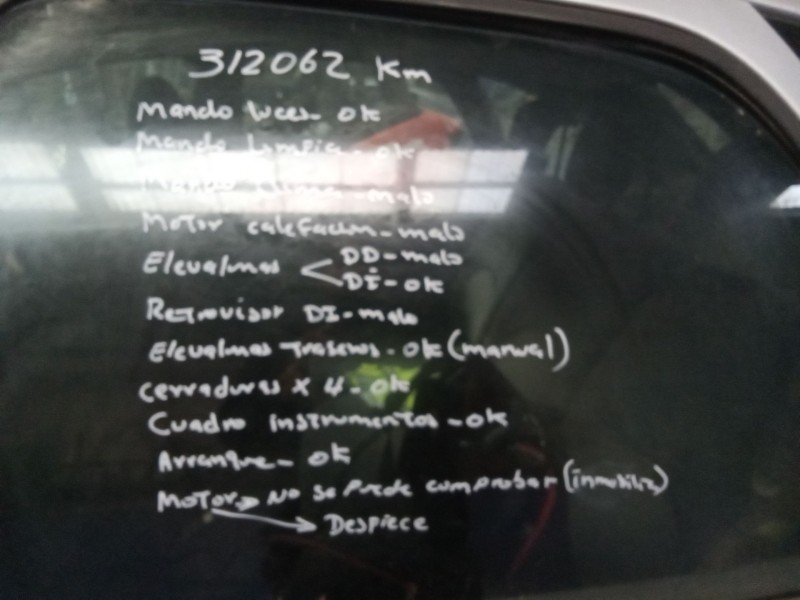 312062 Km
Mando luces - ok
Mando Limpia - ok
Mando clima - malo
Motor calefaccion - malo
Elevalunas < DD - malo
DI - ok
Retrovisor DI - malo
Elevalunas traseros - ok (manual)
cerraduras x 4 - ok
Cuadro instrumentos - ok
Arranque - ok
Motor → No se puede comprobar (inmoviliz)
→ Despiece